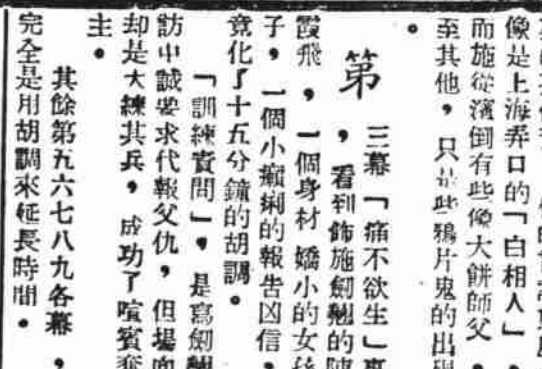 像是上海弄口的「白相人」，
而施從濱倒有些像大餅師父，
至其他，只是些鴉片鬼的出現
。
第三幕「痛不欲生」裏
，看到飾施劍翹的陳
霞飛，一個身材矯小的女孩
子，一個小癩痢的報告凶信，
竟化了十五分鐘的胡調。
「訓練質問」，是寫劍翹
訪中誠要求代報父仇，但場面
却是大練其兵，成功了喧賓奪
主。
其餘第五六七八九各幕，
完全是用胡調來延長時間。